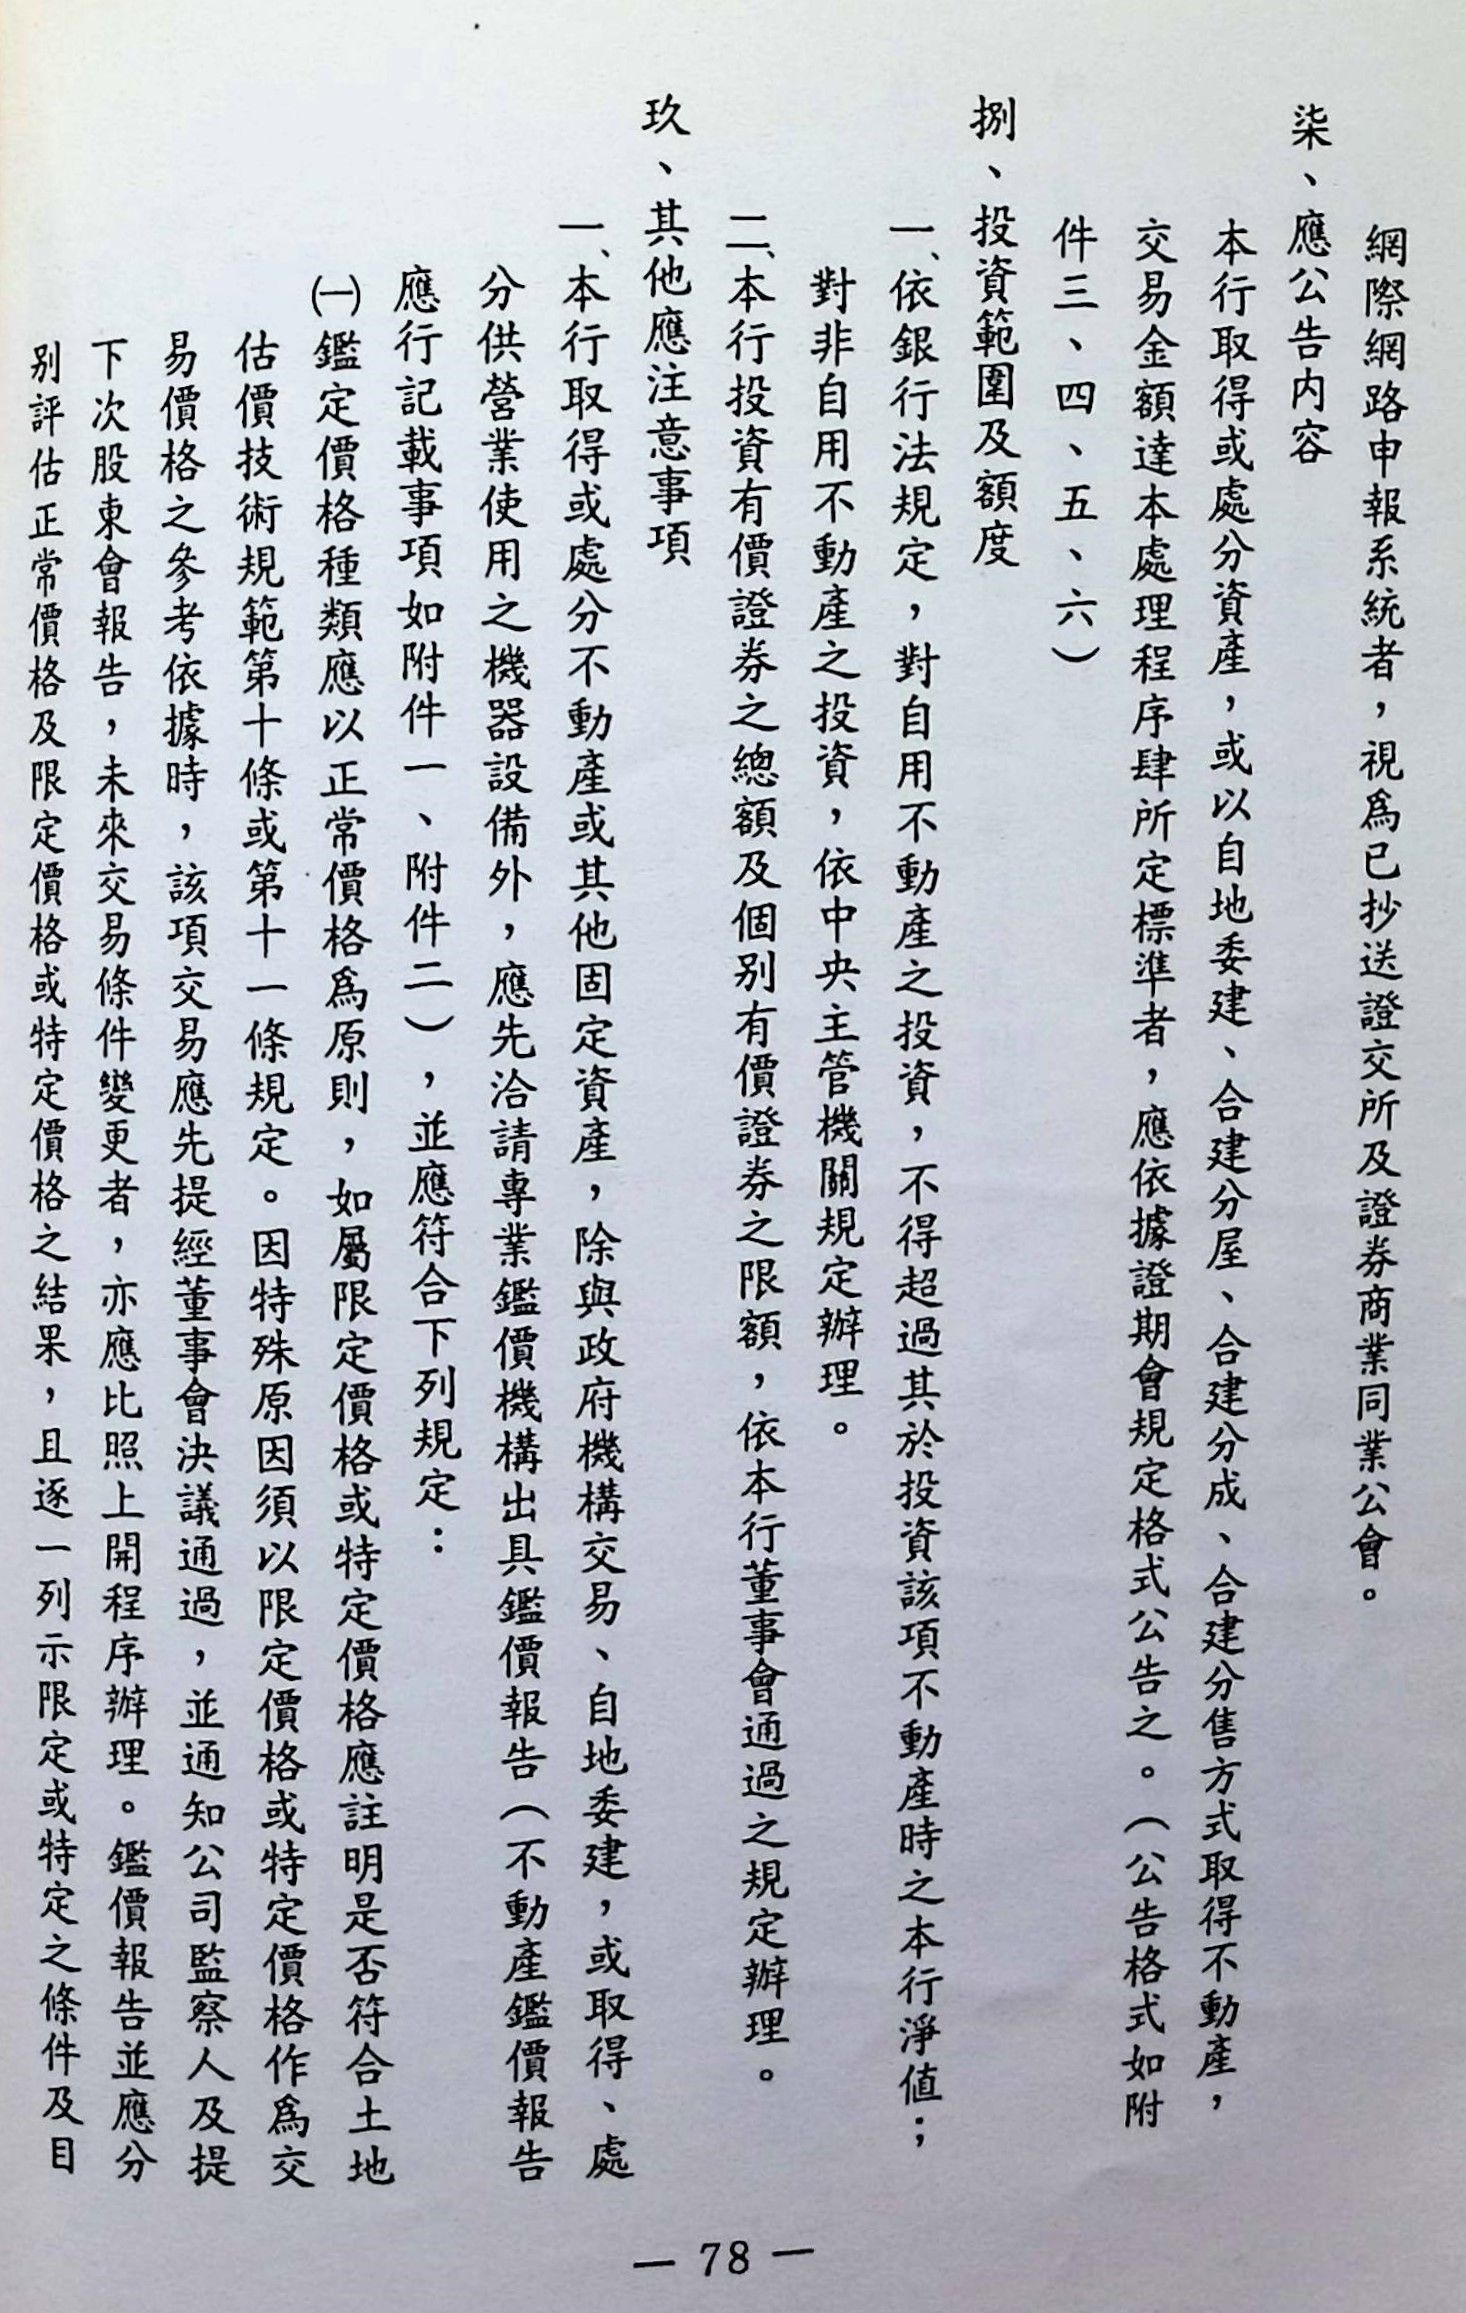 網際網路申報系統者，視為已抄送證交所及證券商業同業公會。
柒、應公告內容
本行取得或處分資產，或以自地委建、合建分屋、合建分成、合建分售方式取得不動產，
交易金額達本處理程序肆所定標準者，應依據證期會規定格式公告之。（公告格式如附
件三、四、五、六）
捌、投資範圍及額度
一、依銀行法規定，對自用不動產之投資，不得超過其於投資該項不動產時之本行淨值；
對非自用不動產之投資，依中央主管機關規定辦理。
二、本行投資有價證券之總額及個別有價證券之限額，依本行董事會通過之規定辦理。
玖、其他應注意事項
一、本行取得或處分不動產或其他固定資產，除與政府機構交易、自地委建，或取得、處
分供營業使用之機器設備外，應先洽請專業鑑價機構出具鑑價報告（不動產鑑價報告
應行記載事項如附件一、附件二），並應符合下列規定：
㈠鑑定價格種類應以正常價格為原則，如屬限定價格或特定價格應註明是否符合土地
估價技術規範第十條或第十一條規定。因特殊原因須以限定價格或特定價格作為交
易價格之參考依據時，該項交易應先提經董事會決議通過，並通知公司監察人及提
下次股東會報告，未來交易條件變更者，亦應比照上開程序辦理。鑑價報告並應分
別評估正常價格及限定價格或特定價格之結果，且逐一列示限定或特定之條件及目
— 78 —